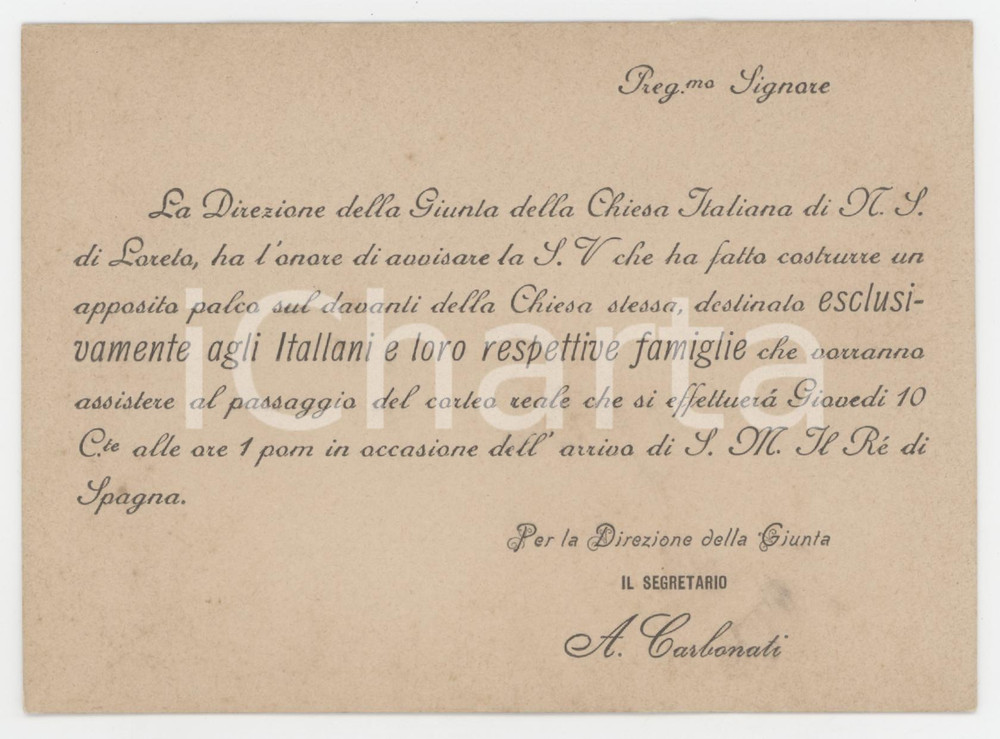 Preg.mo Signore
La Direzione della Giunta della Chiesa Italiana di N. S.
di Loreto, ha l'onore di avvisare la S. V che ha fatto costrurre un
apposito palco sul davanti della Chiesa stessa, destinato esclusi-
vamente agli Itallani e loro respettive famiglie che vorranno
assistere al passaggio del corteo reale che si effettuerá Giovedi 10
C.te alle ore 1 pom in occasione dell' arrivo di S. M. Il Ré di
Spagna.
Per la Direzione della Giunta
IL SEGRETARIO
A. Carbonati
iCharta